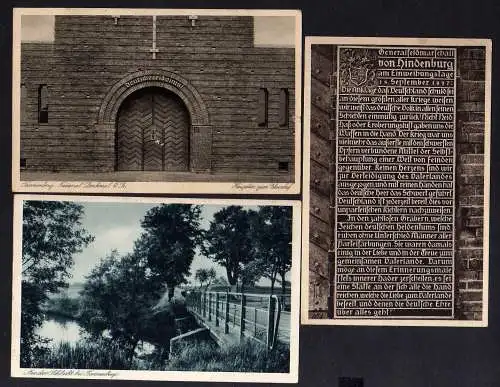 Tannenberg-National Denkmal O. Pr.
Hauptor zum Ehrenhof
An der Schlacht bei Tannenberg
Generalfeldmarschall
von Hindenburg
am Einweihungstage
18. September 1927
Die Anklage, daß Deutschland schuld sei
an diesem größten aller Kriege weisen
wir, weist das deutsche Volk in allen seinen
Schichten einmütig zurück! Nicht Neid
Haß oder Eroberungslust gaben uns die
Waffen in die Hand. Der Krieg war uns
vielmehr das äußerste mit den schwersten
Opfern verbundene Mittel der Selbst-
behauptung einer Welt von Feinden
gegenüber. Reinen Herzens sind wir
zur Verteidigung des Vaterlandes
ausgezogen und mit reinen Händen hat
das deutsche Heer das Schwert geführt.
Deutschland ist jederzeit bereit dies vor
unparteiischen Richtern nachzuweisen.
In den zahllosen Gräbern, welche
Zeichen deutschen Heldentums sind
ruhen ohne Unterschied Männer aller
Parteifärbungen. Sie waren damals
einig in der Liebe und in der Treue zum
gemeinsamen Vaterlande. Darum
möge an diesem Erinnerungsmale
stets innerer Hader zerschellen, es sei
eine Stätte an der sich alle die Hand
reichen, welche die Liebe zum Vaterlande
beseelt und denen die deutsche Ehre
über alles geht!